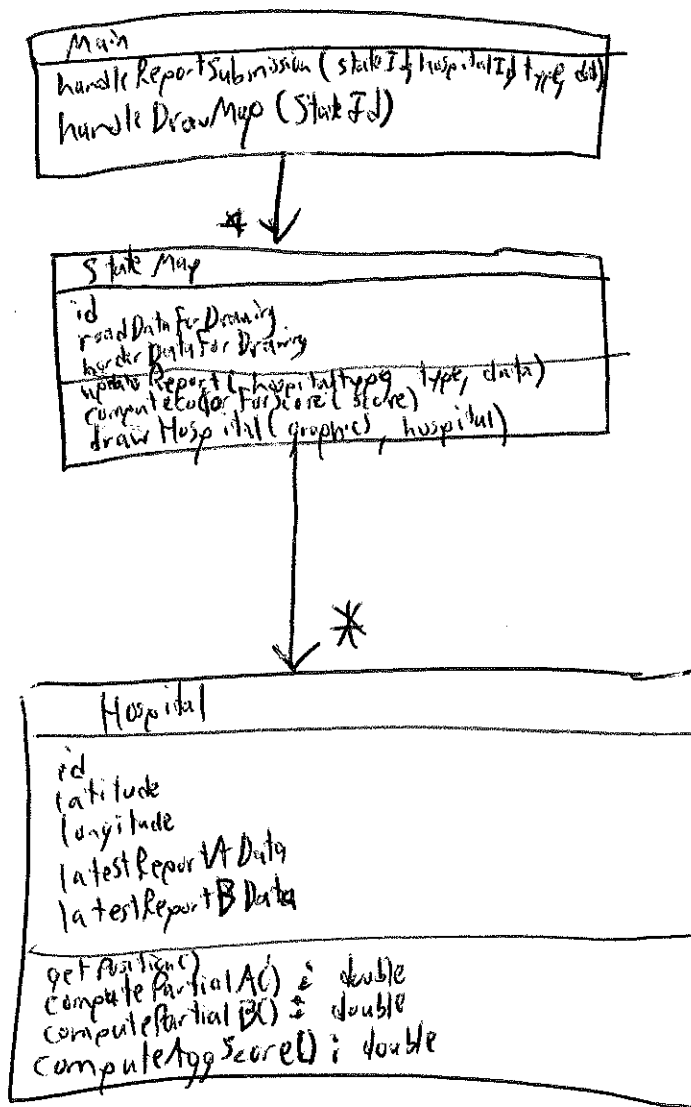 Main
handleReportSubmission (stateId, hospitalId, type, data)
handleDrawMap (StateId)
*
StateMap
id
roadDataForDrawing
borderDataForDrawing
updateReport (hospitaltype, type, data)
computeColorForScore (score)
drawHospital (graphics, hospital)
*
Hospital
id
latitude
longitude
latestReportAData
latestReportBData
getPosition()
computePartialA() : double
computePartialB() : double
computeAggScore() : double